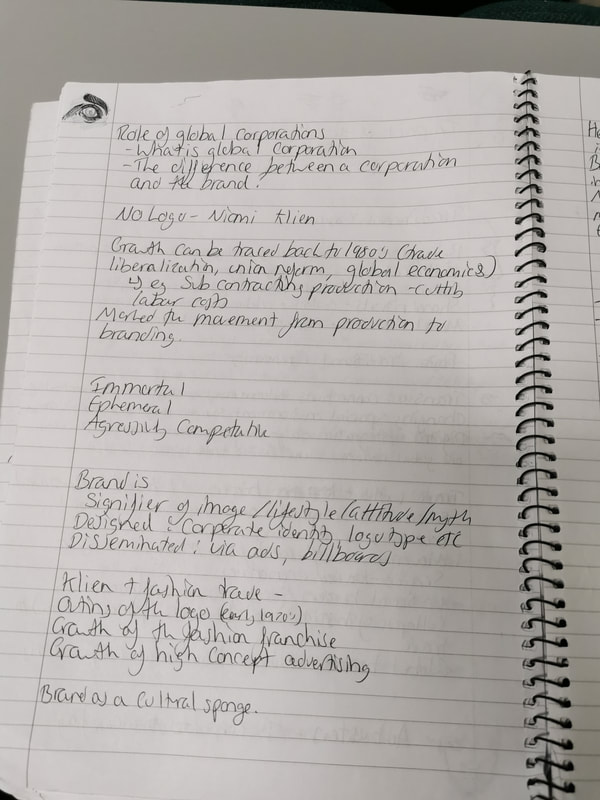 Role of global Corporations
- What is global Corporation
- The difference between a corporation
and the brand?
No Logo - Niomi Klien
Growth can be traced back to 1980's (trade
liberalization, union reform, global economics)
↳ eg Sub contracting production - cutting
labar costs
Marked the movement from production to
branding.
Immortal
Ephemeral
Agressivly Competative
Brand is
Signifier of image/lifestyle/attitude/myth
Designed: Corporate identity, logotype etc
Disseminated: via ads, billboards
Klien + fashion trade -
Outing of the logo (early 1970's)
Growth of the fashion franchise
Growth of high concept advertising
Brand as a Cultral sponge.